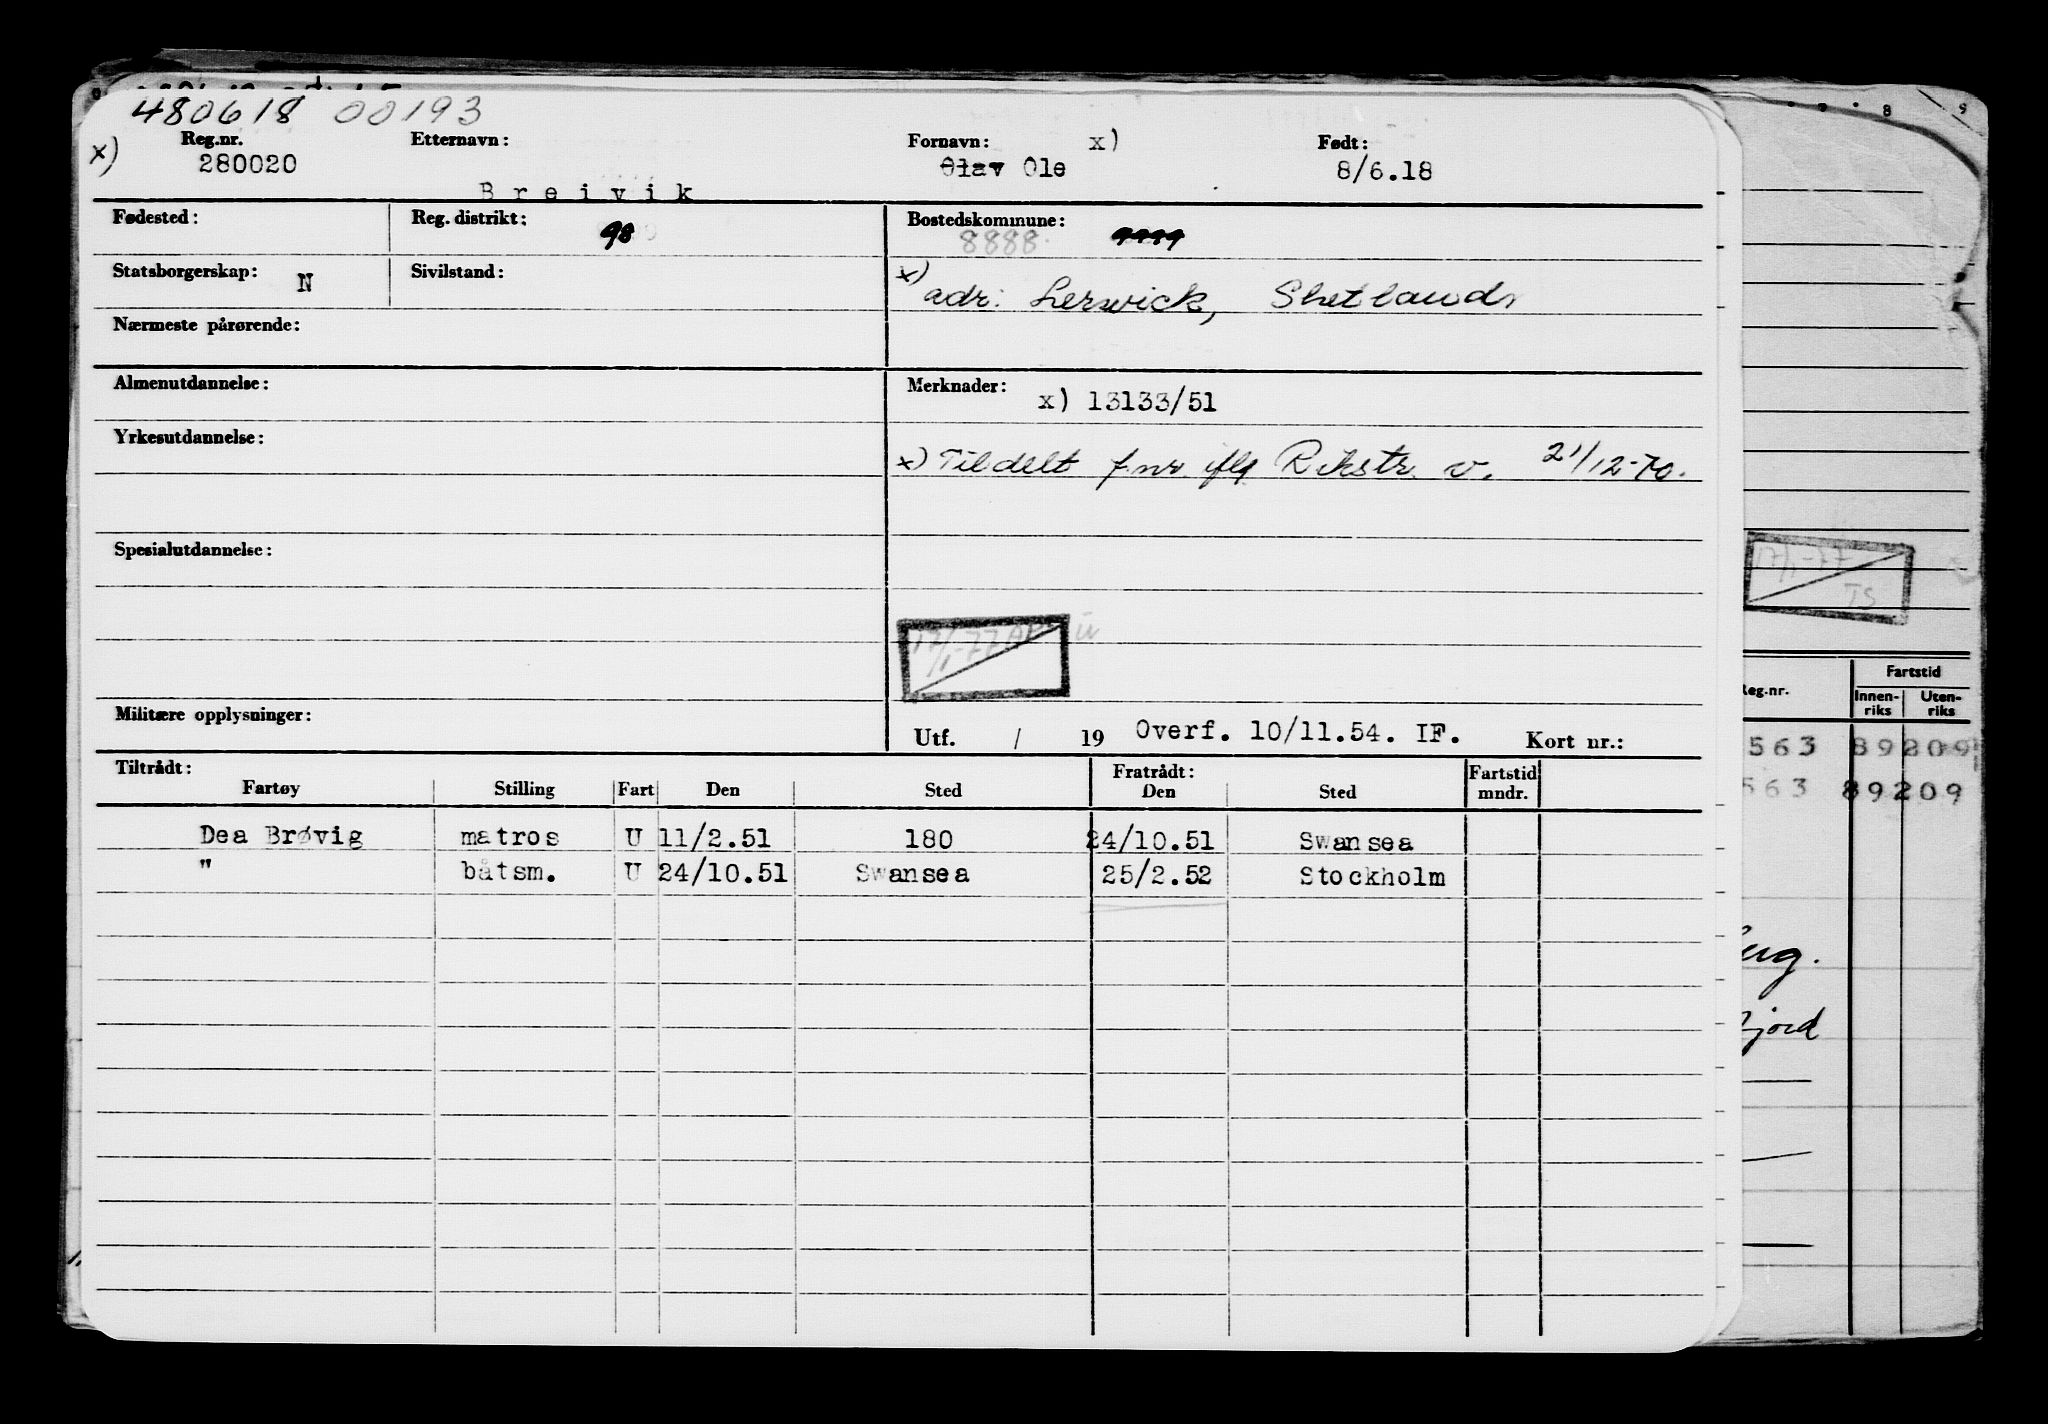 480618 00193
x) Reg.nr. Etternavn: Fornavn: x) Født:
280020 Breivik Olav Ole 8/6.18
Fødested: Reg. distrikt: 98 Bostedskommune: 8888
Statsborgerskap: N Sivilstand: x) adr: Lerwick, Shetlands
Nærmeste pårørende:
Almenutdannelse: Merknader: x) 13133/51
Yrkesutdannelse: x) Tildelt f nr. iflg Rikstr. v. 21/12-70.
Spesialutdannelse:
17/1-77
Militære opplysninger: Utf. / 19 Overf. 10/11.54. IF. Kort nr.:
Tiltrådt: Fratrådt: Fartstid mndr.
Fartøy Stilling Fart Den Sted Den Sted
Dea Brøvig matros U 11/2.51 180 24/10.51 Swansea
" båtsm. U 24/10.51 Swansea 25/2.52 Stockholm
7 8 9
17/1-77
TS
Reg.nr. Fartstid
Innen-riks Uten-riks
563 89209
563 89209
jord